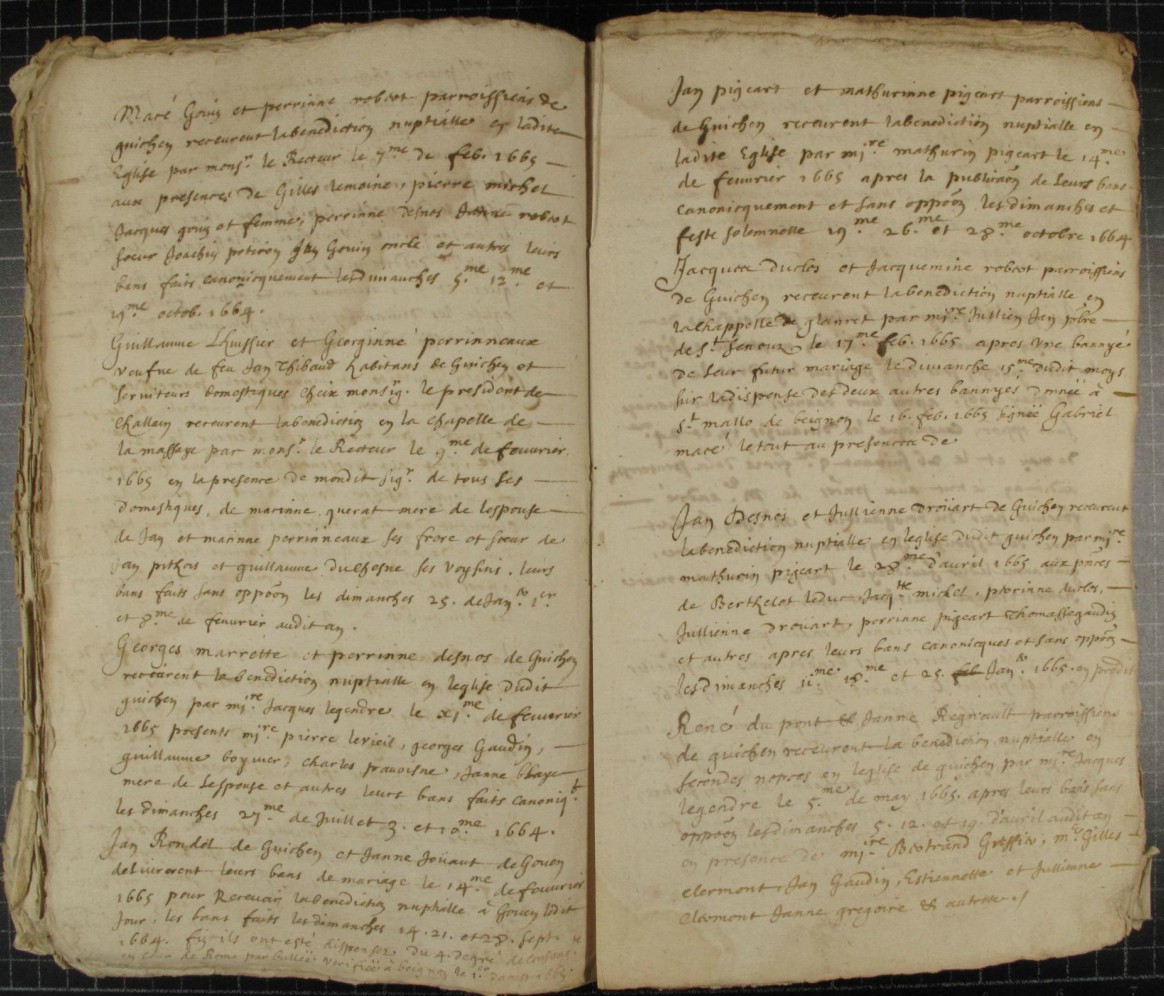 Macé Gouin et perrinne robert parroissiens de
guichen receurent la benediction nuptialle en ladite
Eglise par monsr. le Recteur le 7me de feb. 1665
aux presences de Gilles lemoine, pierre michel
Jacques et femme, perrinne desnos robert
soeur Joachin poticon Jan Gouin oncle et autres leurs
bans faits canonicquement les dimanches 5. me 12. me et
19. me octob. 1664.
Guillaume Lhuissier et Georginne perrinneaux
veufve de feu Jan Thibaud habitans de Guichen et
serviteurs domestiques cheix monsigr. le president de
Challain receurent la benediction en la chapelle de
la massaye par monsr. le Recteur le 9. me de feuvrier
1665 en la presence de mondit sigr. de tous ses
domestiques, de marinne querat mere de lespouse
de Jan et marinne perrinneaux ses frere et soeur de
Jan pithois et guillaume duchesne ses voysins, leurs
bans faits sans oppoõn les dimanches 25. de Janer 1er
et 8me de feuvrier audit an.
Georges marrette et perrinne desnos de Guichen
receurent la benediction nuptialle en leglise dudit
guichen par mire Jacques legendre le xi. me de feuvrier
1665 presents mire pierre levieil, georges Gaudin,
guillaume boyvier, charles, Janne blaye
mere de lespouse et autres leurs bans faits canoniqt
les dimanches 27. me de Juillet 3. et 10. me 1664.
Jan Rondel de Guichen et Janne Joüaut de Goven
delivrerent leurs bans de mariage le 14. me de feuvrier
1665 pour Recevoir la benediction nuptialle à Goven ledit
Jour, les bans faits les dimanches 14. 21. et 28. Sept.
1664. ils ont esté dispensez du 4. degré de consang.
en cour de Rome par bulle verifiée à beignon le 1665.
Jan pigeart et mathurinne pigeart parroissiens
de Guichen receurent la benediction nuptialle en
ladite Eglise par mire mathurin pigeart le 14. me
de feuvrier 1665 apres la publicaõn de leurs bans
canonicquement et sans oppoõn les dimanches et
feste solemnelle 19. me 26. me et 28. me octobre 1664
Jacques duclos et Jacquemine robert parroissiens
de Guichen receurent la benediction nuptialle en
la chappelle de glanret par mire Jullien Jan pbre
de St. Senoux le 17me feb. 1665 apres une bannye
de leur futur mariage le dimanche 15. me dudit moys
sur la dispense des deux autres bannyes donnée à
St. mallo de beignon le 16. feb. 1665 signée Gabriel
macé le tout au presence de
Jan Desnos et Jullienne drouart de Guichen receurent
la benediction nuptialle en leglise dudit guichen par mire
mathurin pigeart le 28. me d'avril 1665 aux pñces
de Berthelot leduc, Jacqtte michel, perrinne duclos,
Jullienne drouart, perrinne pigeart Thomasse gaudin
et autres apres leurs bans canonicques et sans oppoõn
les dimanches 11. me 18. me et 25. feb Janer 1665. en predit
René du pont & Janne Regnault parroissiens
de guichen receurent la benediction nuptialle en
secondes nopces en leglise de guichen par mire Jacques
legendre le 5. me de may 1665. apres leurs bans sans
oppoõn les dimanches 5. 12. et 19. d'avril audit an
en presence de mire Bertrand Greffier, mr. Gilles
Clermont, Jan Gaudin, Estiennette et Jullianne
Clermont Janne gregoire & autres./